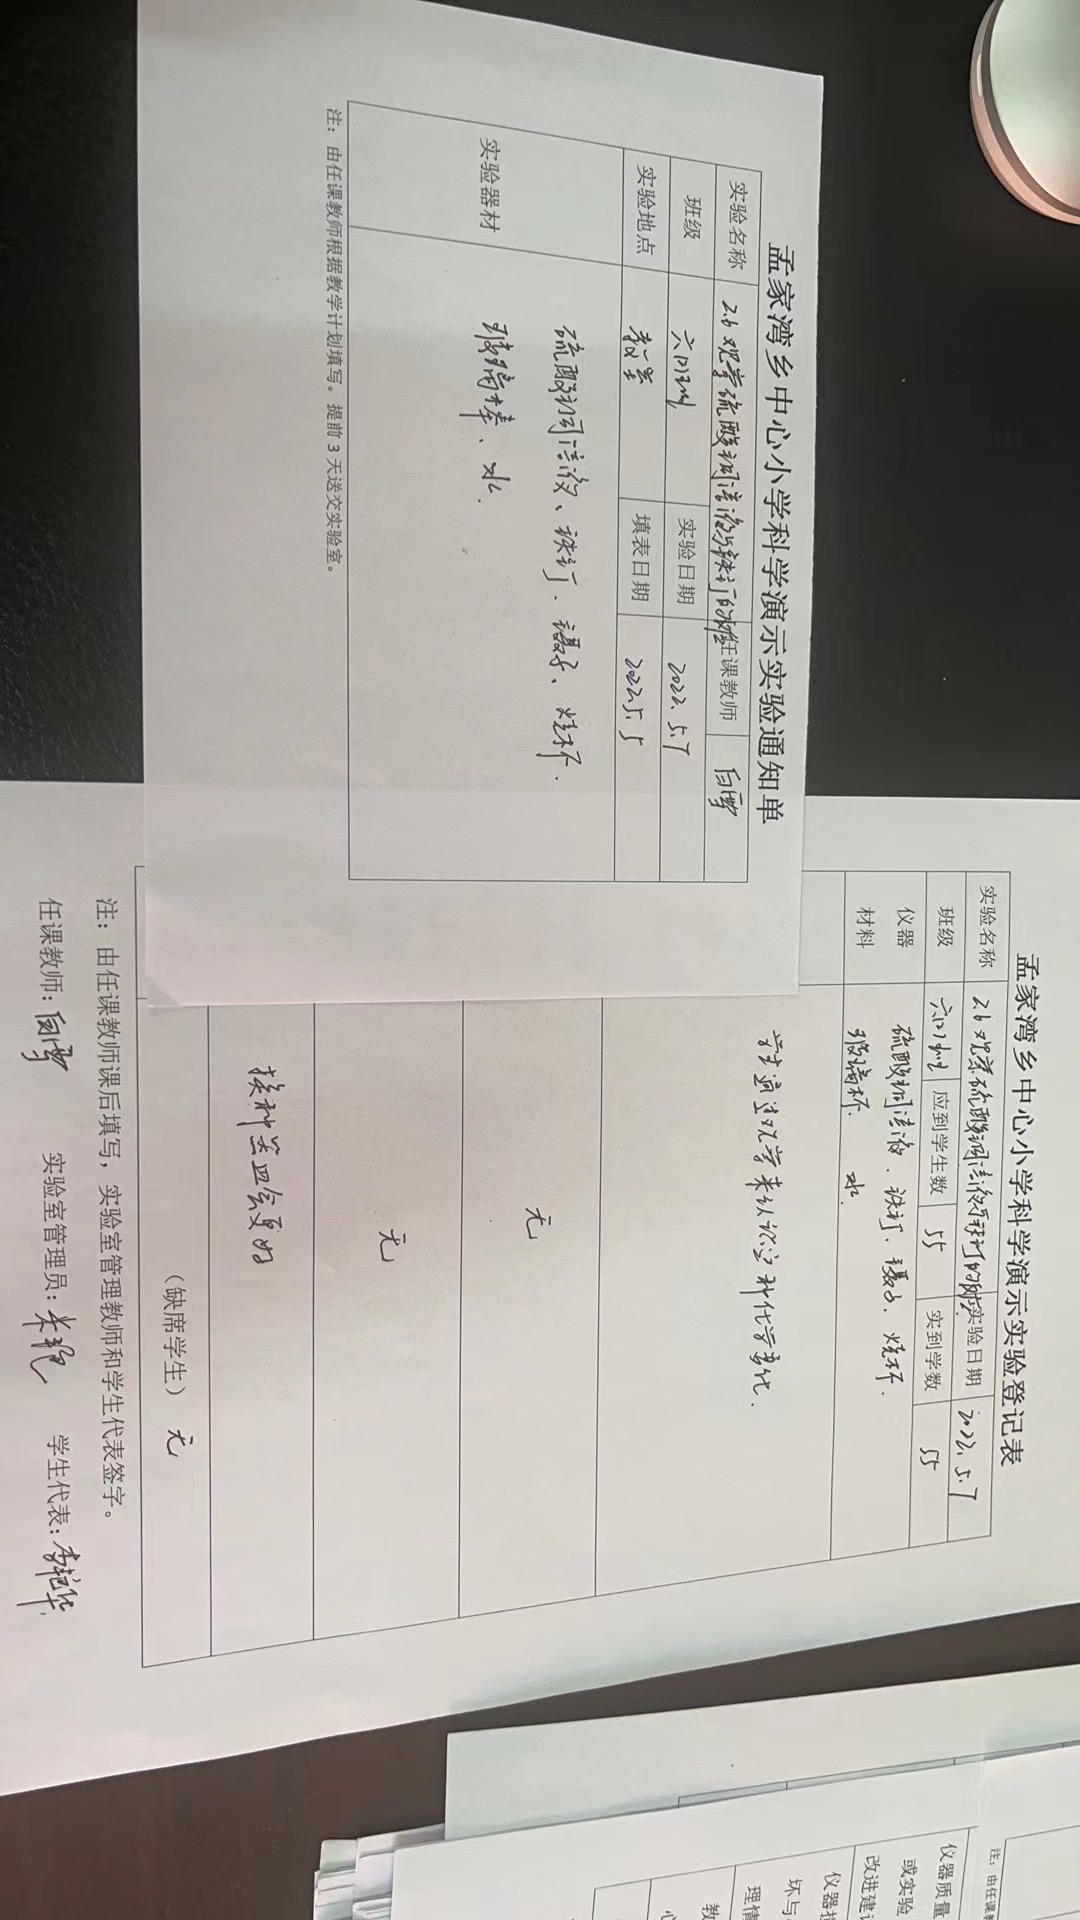 孟家湾乡中心小学科学演示实验通知单
实验名称 2.6观察硫酸铜溶液与铁钉的 任课教师 白雪
班级 六(1)班 实验日期 2022.5.7
实验地点 教室 填表日期 2022.5.5
实验器材 硫酸铜溶液、铁钉、镊子、烧杯.
玻璃棒、水.
注：由任课教师根据教学计划填写。提前3天送交实验室。
孟家湾乡中心小学科学演示实验登记表
实验名称 2.6观察硫酸铜溶液 铁钉的 实验日期 2022.5.7
班级 六(1)班 应到学生数 55 实到学数 55
仪器
材料
硫酸铜溶液、铁钉、镊子、烧杯.
玻璃杯. 水.
学生通过观察来认识 种化学变化.
无
无
换种 会更好
（缺席学生） 无
注：由任课教师课后填写，实验室管理教师和学生代表签字。
任课教师：白雪 实验室管理员： 学生代表：
注：由任课
仪器质量
或实验
改进建
仪器
坏与
理情
教
心